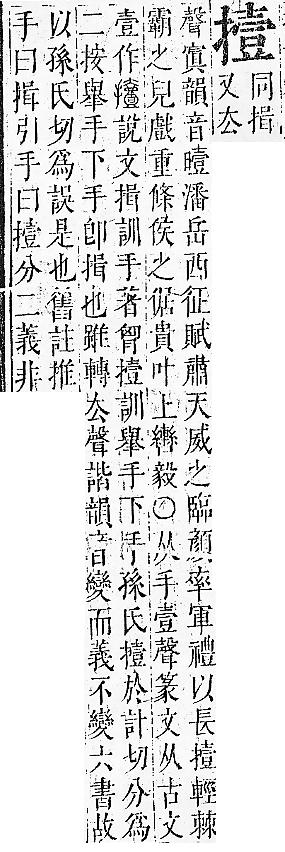 撎
同揖
又厺
聲寘韻音曀潘岳西征賦肅天威之臨顏率軍禮以長撎輕棘
霸之兒戲重條侯之倨貴叶上轡毅〇从手壹聲篆文从古文
壹作說文揖訓手著胷撎訓舉手下手孫氏撎於計切分爲
二按舉手下手卽揖也雖轉厺聲諧韻音變而義不變六書故
以孫氏切爲誤是也舊註推
手曰揖引手曰撎分二義非